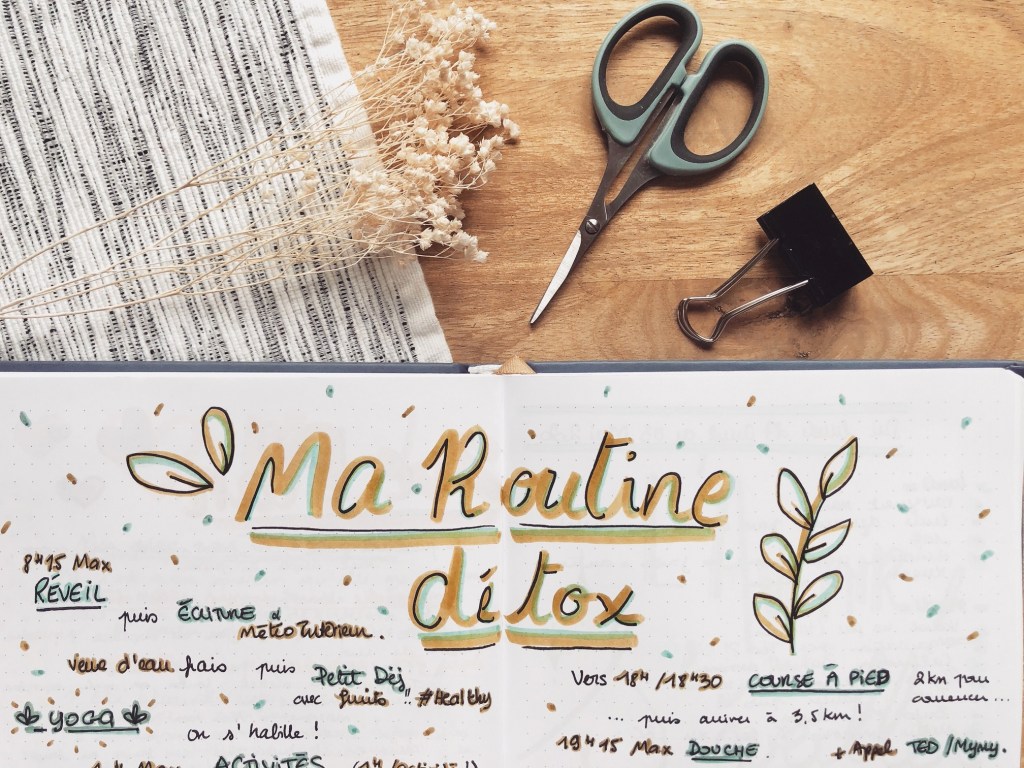 Ma Routine
détox
8H15 Max
RÉVEIL
puis ÉCRITURE &
Météo Intérieure.
Verre d'eau frais puis Petit Déj
avec fruits !! #Healthy
yoga
on s'habille !
Max ACTIVITÉS
Vers 18H/18H30 COURSE À PIED 2km pour
commencer...
... puis arriver à 3,5km !
19H15 Max DOUCHE + Appel TED/Mymy.